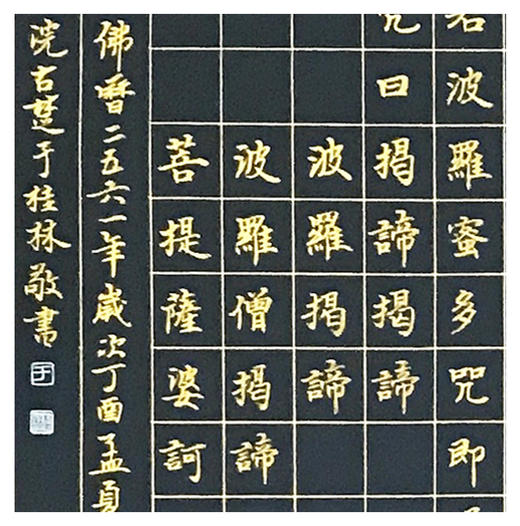 波羅蜜多咒即
曰揭諦揭諦
波羅揭諦
波羅僧揭諦
菩提薩婆訶
佛曆二五六一年歲次丁酉孟夏
浣古楚于桂林敬書